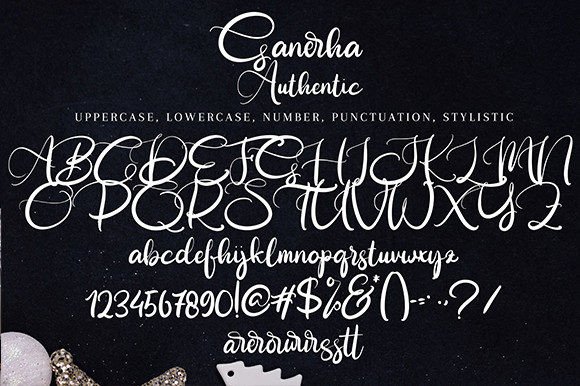 Ganerha
Authentic
UPPERCASE, LOWERCASE, NUMBER, PUNCTUATION, STYLISTIC
ABCDEFGHIJKLMN
OPQRSTUVWXYZ
abcdefghijklmnopqrstuvwxyz
1234567890!@#$%&*()-=:.,?/
arerorurirsstt